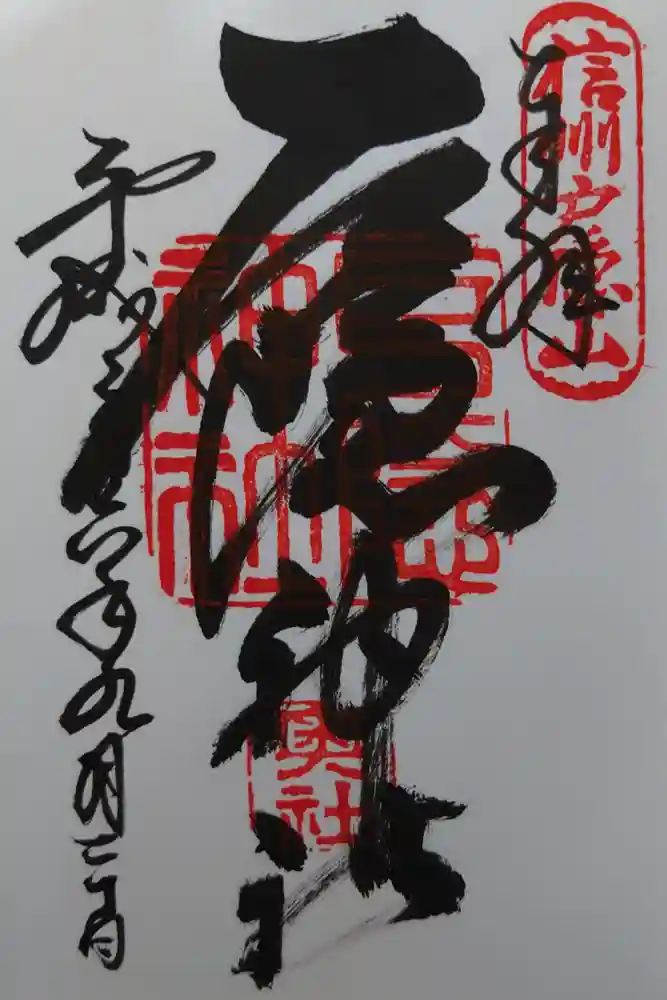 信州戸隠山
奉拝
戸隠神社
奥社
平成二十六年九月二日